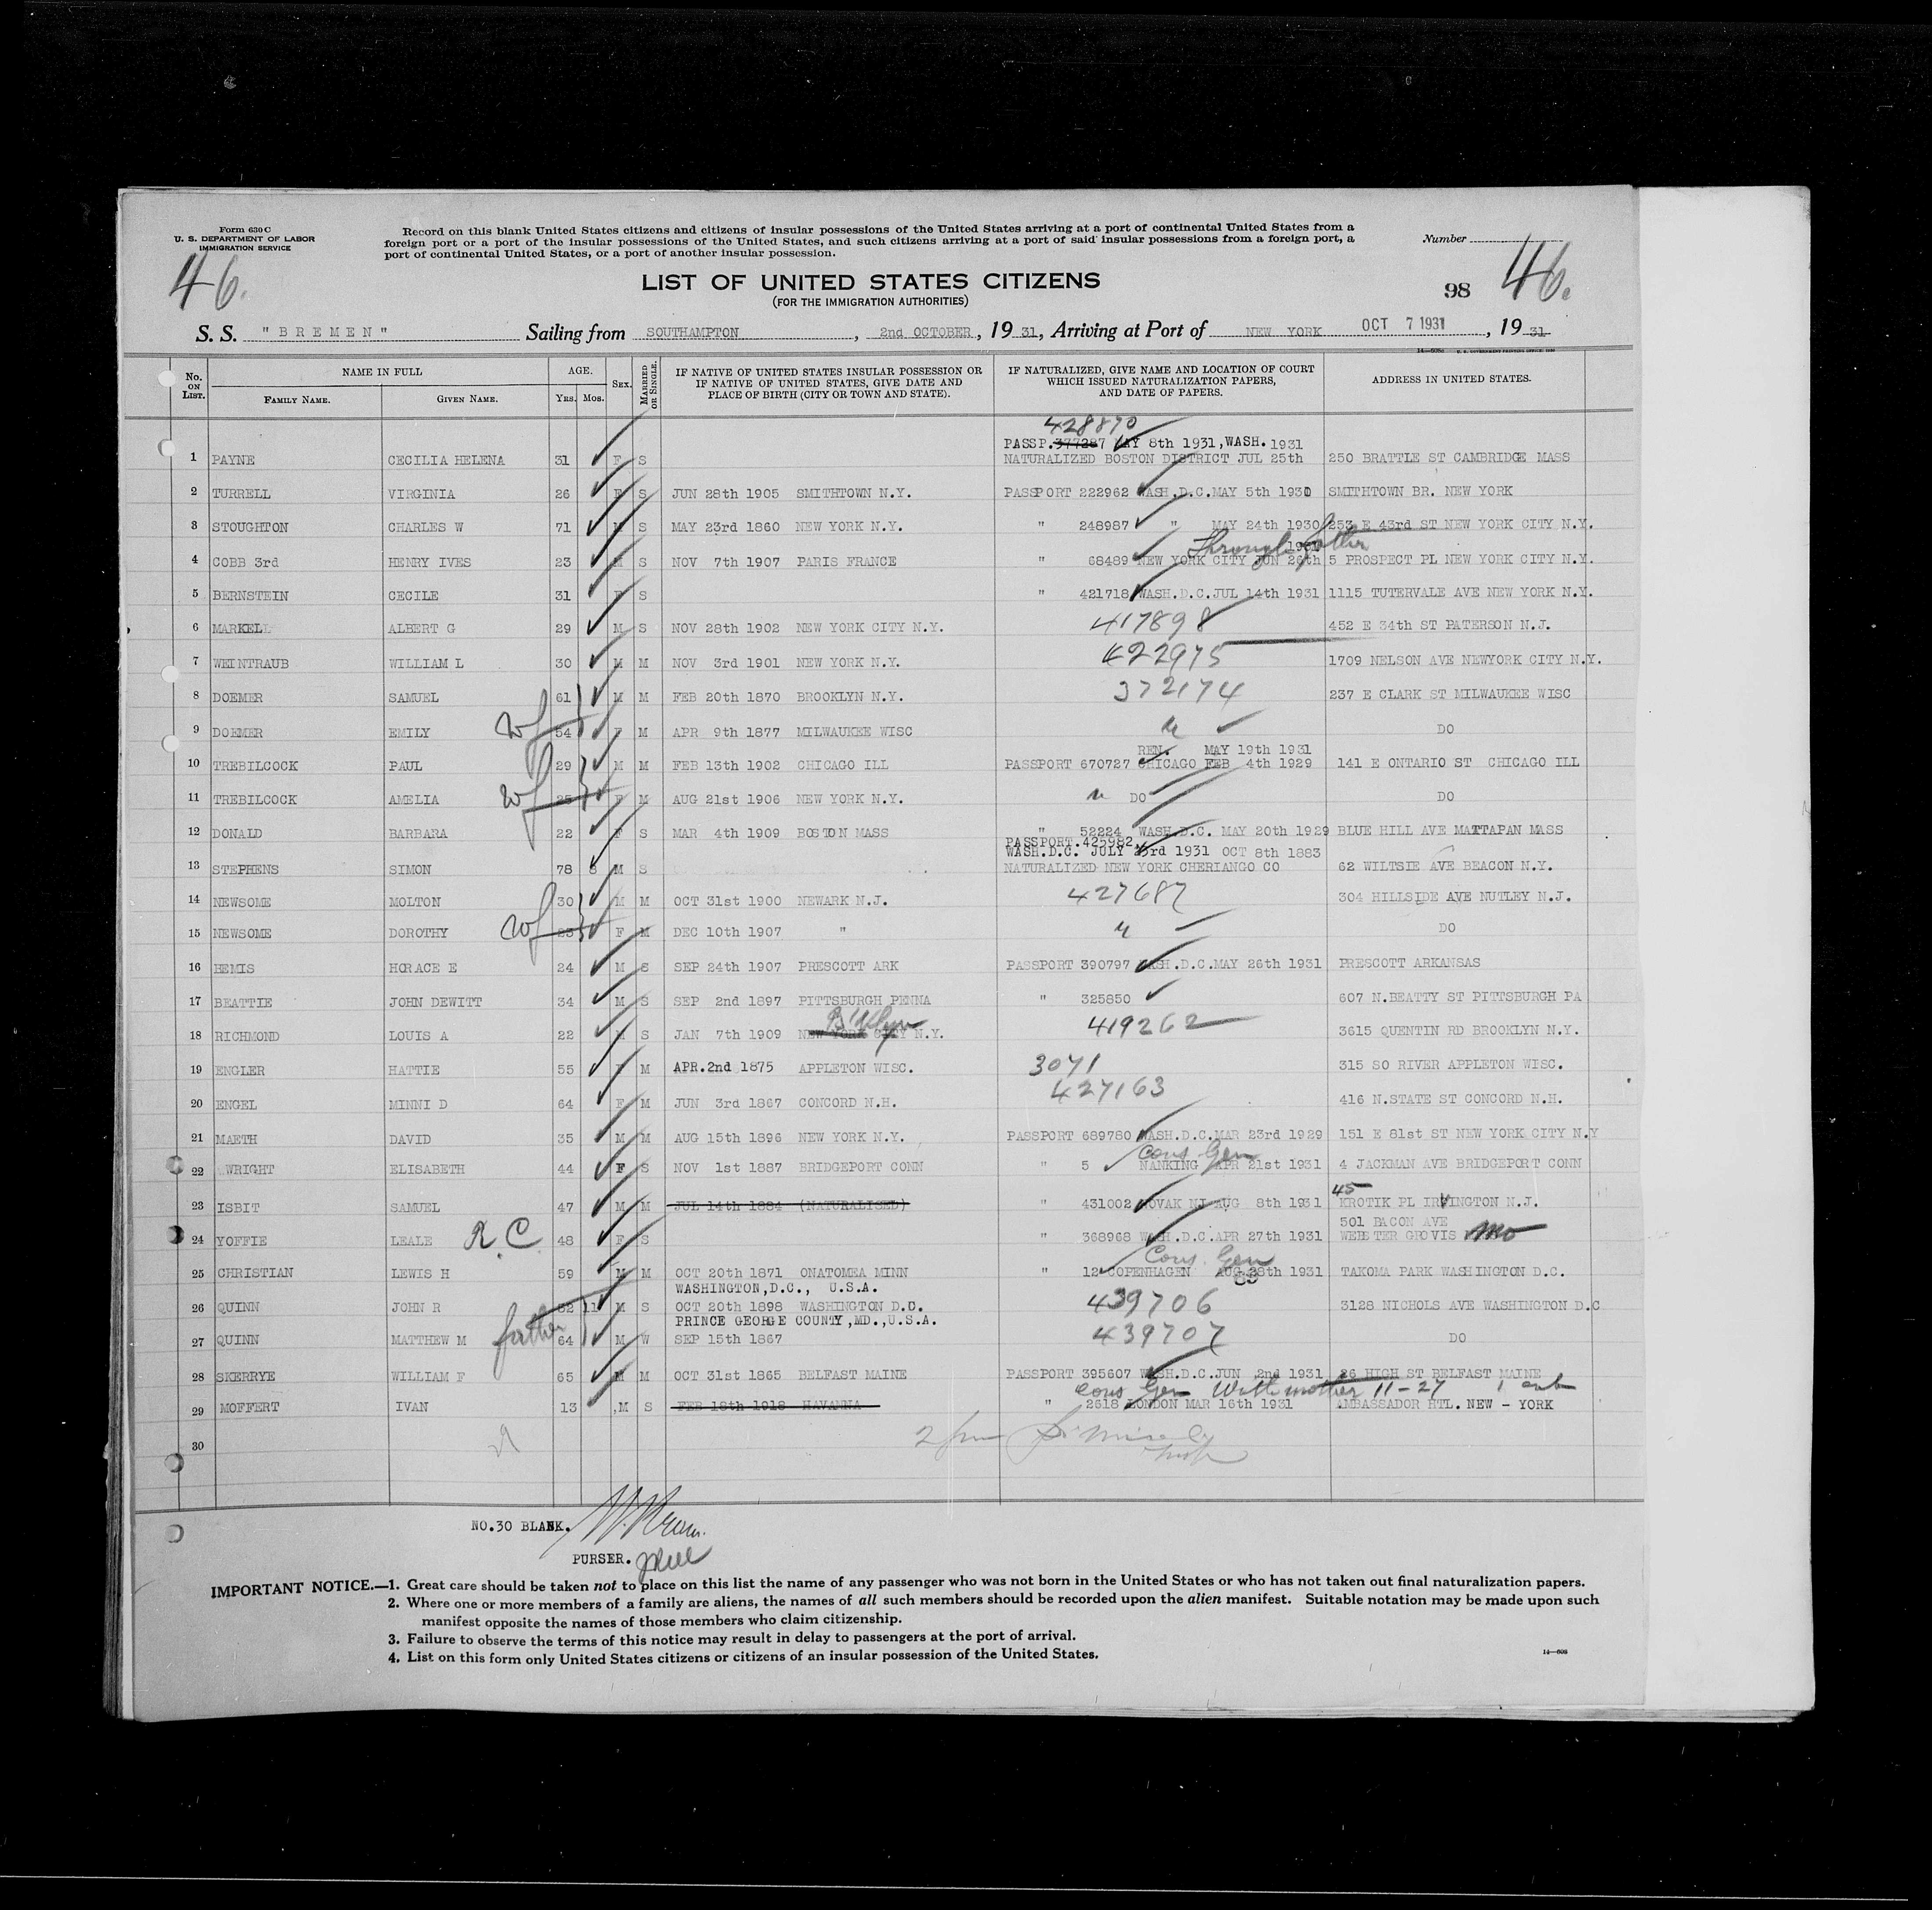 Form 630 C
U. S. DEPARTMENT OF LABOR
IMMIGRATION SERVICE
Record on this blank United States citizens and citizens of insular possessions of the United States arriving at a port of continental United States from a
foreign port or a port of the insular possessions of the United States, and such citizens arriving at a port of said insular possessions from a foreign port, a
port of continental United States, or a port of another insular possession.
Number
46.
LIST OF UNITED STATES CITIZENS
(FOR THE IMMIGRATION AUTHORITIES)
98 46.
S. S. "BREMEN" Sailing from SOUTHAMPTON, 2nd OCTOBER, 1931, Arriving at Port of NEW YORK OCT 7 1931, 1931
No. ON LIST. NAME IN FULL FAMILY NAME. GIVEN NAME. AGE. YRS. MOS. SEX. MARRIED OR SINGLE. IF NATIVE OF UNITED STATES INSULAR POSSESSION OR IF NATIVE OF UNITED STATES, GIVE DATE AND PLACE OF BIRTH (CITY OR TOWN AND STATE). IF NATURALIZED, GIVE NAME AND LOCATION OF COURT WHICH ISSUED NATURALIZATION PAPERS, AND DATE OF PAPERS. ADDRESS IN UNITED STATES.
428870
PASSP.377287 MAY 8th 1931,WASH. 1931
1 PAYNE CECILIA HELENA 31 F S NATURALIZED BOSTON DISTRICT JUL 25th 250 BRATTLE ST CAMBRIDGE MASS
2 TURRELL VIRGINIA 26 F S JUN 28th 1905 SMITHTOWN N.Y. PASSPORT 222962 WASH.D.C.MAY 5th 1930 SMITHTOWN BR. NEW YORK
3 STOUGHTON CHARLES W 71 M S MAY 23rd 1860 NEW YORK N.Y. " 248987 " MAY 24th 1930 253 E 43rd ST NEW YORK CITY N.Y.
Through father 1931
4 COBB 3rd HENRY IVES 23 M S NOV 7th 1907 PARIS FRANCE " 68489 NEW YORK CITY JUN 26th 5 PROSPECT PL NEW YORK CITY N.Y.
5 BERNSTEIN CECILE 31 F S " 421718 WASH.D.C.JUL 14th 1931 1115 TUTERVALE AVE NEW YORK N.Y.
6 MARKELL ALBERT G 29 M S NOV 28th 1902 NEW YORK CITY N.Y. 417898 452 E 34th ST PATERSON N.J.
7 WEINTRAUB WILLIAM L 30 M M NOV 3rd 1901 NEW YORK N.Y. 422975 1709 NELSON AVE NEWYORK CITY N.Y.
8 DOEMER SAMUEL 61 M M FEB 20th 1870 BROOKLYN N.Y. 372174 237 E CLARK ST MILWAUKEE WISC
9 DOEMER EMILY wf 54 F M APR 9th 1877 MILWAUKEE WISC " DO
REN. MAY 19th 1931
10 TREBILCOCK PAUL 29 M M FEB 13th 1902 CHICAGO ILL PASSPORT 670727 CHICAGO FEB 4th 1929 141 E ONTARIO ST CHICAGO ILL
11 TREBILCOCK AMELIA wf 25 F M AUG 21st 1906 NEW YORK N.Y. " DO DO
12 DONALD BARBARA 22 F S MAR 4th 1909 BOSTON MASS " 52224 WASH.D.C. MAY 20th 1929 BLUE HILL AVE MATTAPAN MASS
PASSPORT.425982,
WASH.D.C. JULY 23rd 1931 OCT 8th 1883
13 STEPHENS SIMON 78 8 M S NATURALIZED NEW YORK CHERIANGO CO 62 WILTSIE AVE BEACON N.Y.
14 NEWSOME MOLTON 30 M M OCT 31st 1900 NEWARK N.J. 427687 304 HILLSIDE AVE NUTLEY N.J.
15 NEWSOME DOROTHY wf 23 F M DEC 10th 1907 " " DO
16 HEMIS HORACE E 24 M S SEP 24th 1907 PRESCOTT ARK PASSPORT 390797 WASH.D.C.MAY 26th 1931 PRESCOTT ARKANSAS
17 BEATTIE JOHN DEWITT 34 M S SEP 2nd 1897 PITTSBURGH PENNA " 325850 607 N.BEATTY ST PITTSBURGH PA
B'klyn
18 RICHMOND LOUIS A 22 M S JAN 7th 1909 NEW YORK CITY N.Y. 419262 3615 QUENTIN RD BROOKLYN N.Y.
19 ENGLER HATTIE 55 F M APR.2nd 1875 APPLETON WISC. 3071 315 SO RIVER APPLETON WISC.
20 ENGEL MINNI D 64 F M JUN 3rd 1867 CONCORD N.H. 427163 416 N.STATE ST CONCORD N.H.
21 MAETH DAVID 35 M M AUG 15th 1896 NEW YORK N.Y. PASSPORT 689780 WASH.D.C.MAR 23rd 1929 151 E 81st ST NEW YORK CITY N.Y
Cons Gen
22 WRIGHT ELISABETH 44 F S NOV 1st 1887 BRIDGEPORT CONN " 5 NANKING APR 21st 1931 4 JACKMAN AVE BRIDGEPORT CONN
45
23 ISBIT SAMUEL 47 M M JUL 14th 1884 (NATURALISED) " 431002 NOVAK NJ AUG 8th 1931 KROTIK PL IRVINGTON N.J.
501 BACON AVE
24 YOFFIE LEALE R.C. 48 F S " 368968 WASH.D.C.APR 27th 1931 WEBSTER GROVIS Mo
Cons. Gen
25 CHRISTIAN LEWIS H 59 M M OCT 20th 1871 ONATOMEA MINN " 12 COPENHAGEN AUG 28th 1931 TAKOMA PARK WASHINGTON D.C.
WASHINGTON,D.C., U.S.A.
26 QUINN JOHN R 32 11 M S OCT 20th 1898 WASHINGTON D.C. 439706 3128 NICHOLS AVE WASHINGTON D.C
PRINCE GEORGE COUNTY,MD.,U.S.A.
27 QUINN MATTHEW M father 64 M W SEP 15th 1867 439707 DO
28 SKERRYE WILLIAM F 65 M M OCT 31st 1865 BELFAST MAINE PASSPORT 395607 WASH.D.C.JUN 2nd 1931 26 HIGH ST BELFAST MAINE
Cons Gen With mother 11-27
29 MOFFERT IVAN 13 M S FEB 18th 1918 HAVANNA " 2618 LONDON MAR 16th 1931 AMBASSADOR HTL. NEW - YORK
30
NO.30 BLANK.
PURSER.
IMPORTANT NOTICE.—1. Great care should be taken not to place on this list the name of any passenger who was not born in the United States or who has not taken out final naturalization papers.
2. Where one or more members of a family are aliens, the names of all such members should be recorded upon the alien manifest. Suitable notation may be made upon such
manifest opposite the names of those members who claim citizenship.
3. Failure to observe the terms of this notice may result in delay to passengers at the port of arrival.
4. List on this form only United States citizens or citizens of an insular possession of the United States.
14—608